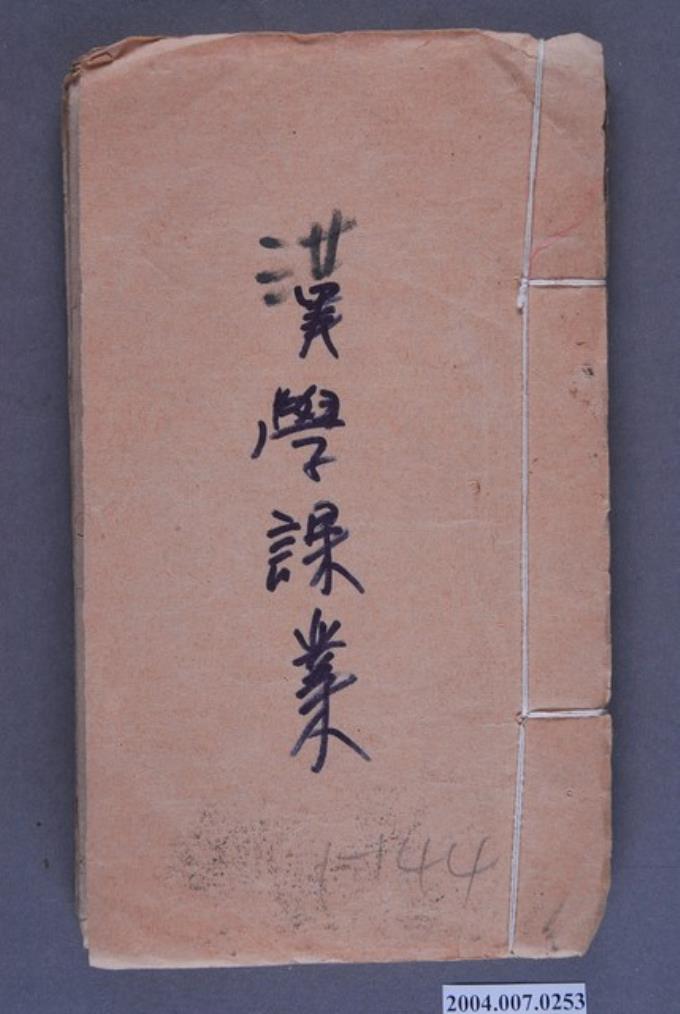 漢學課業
1-144
2004.007.0253